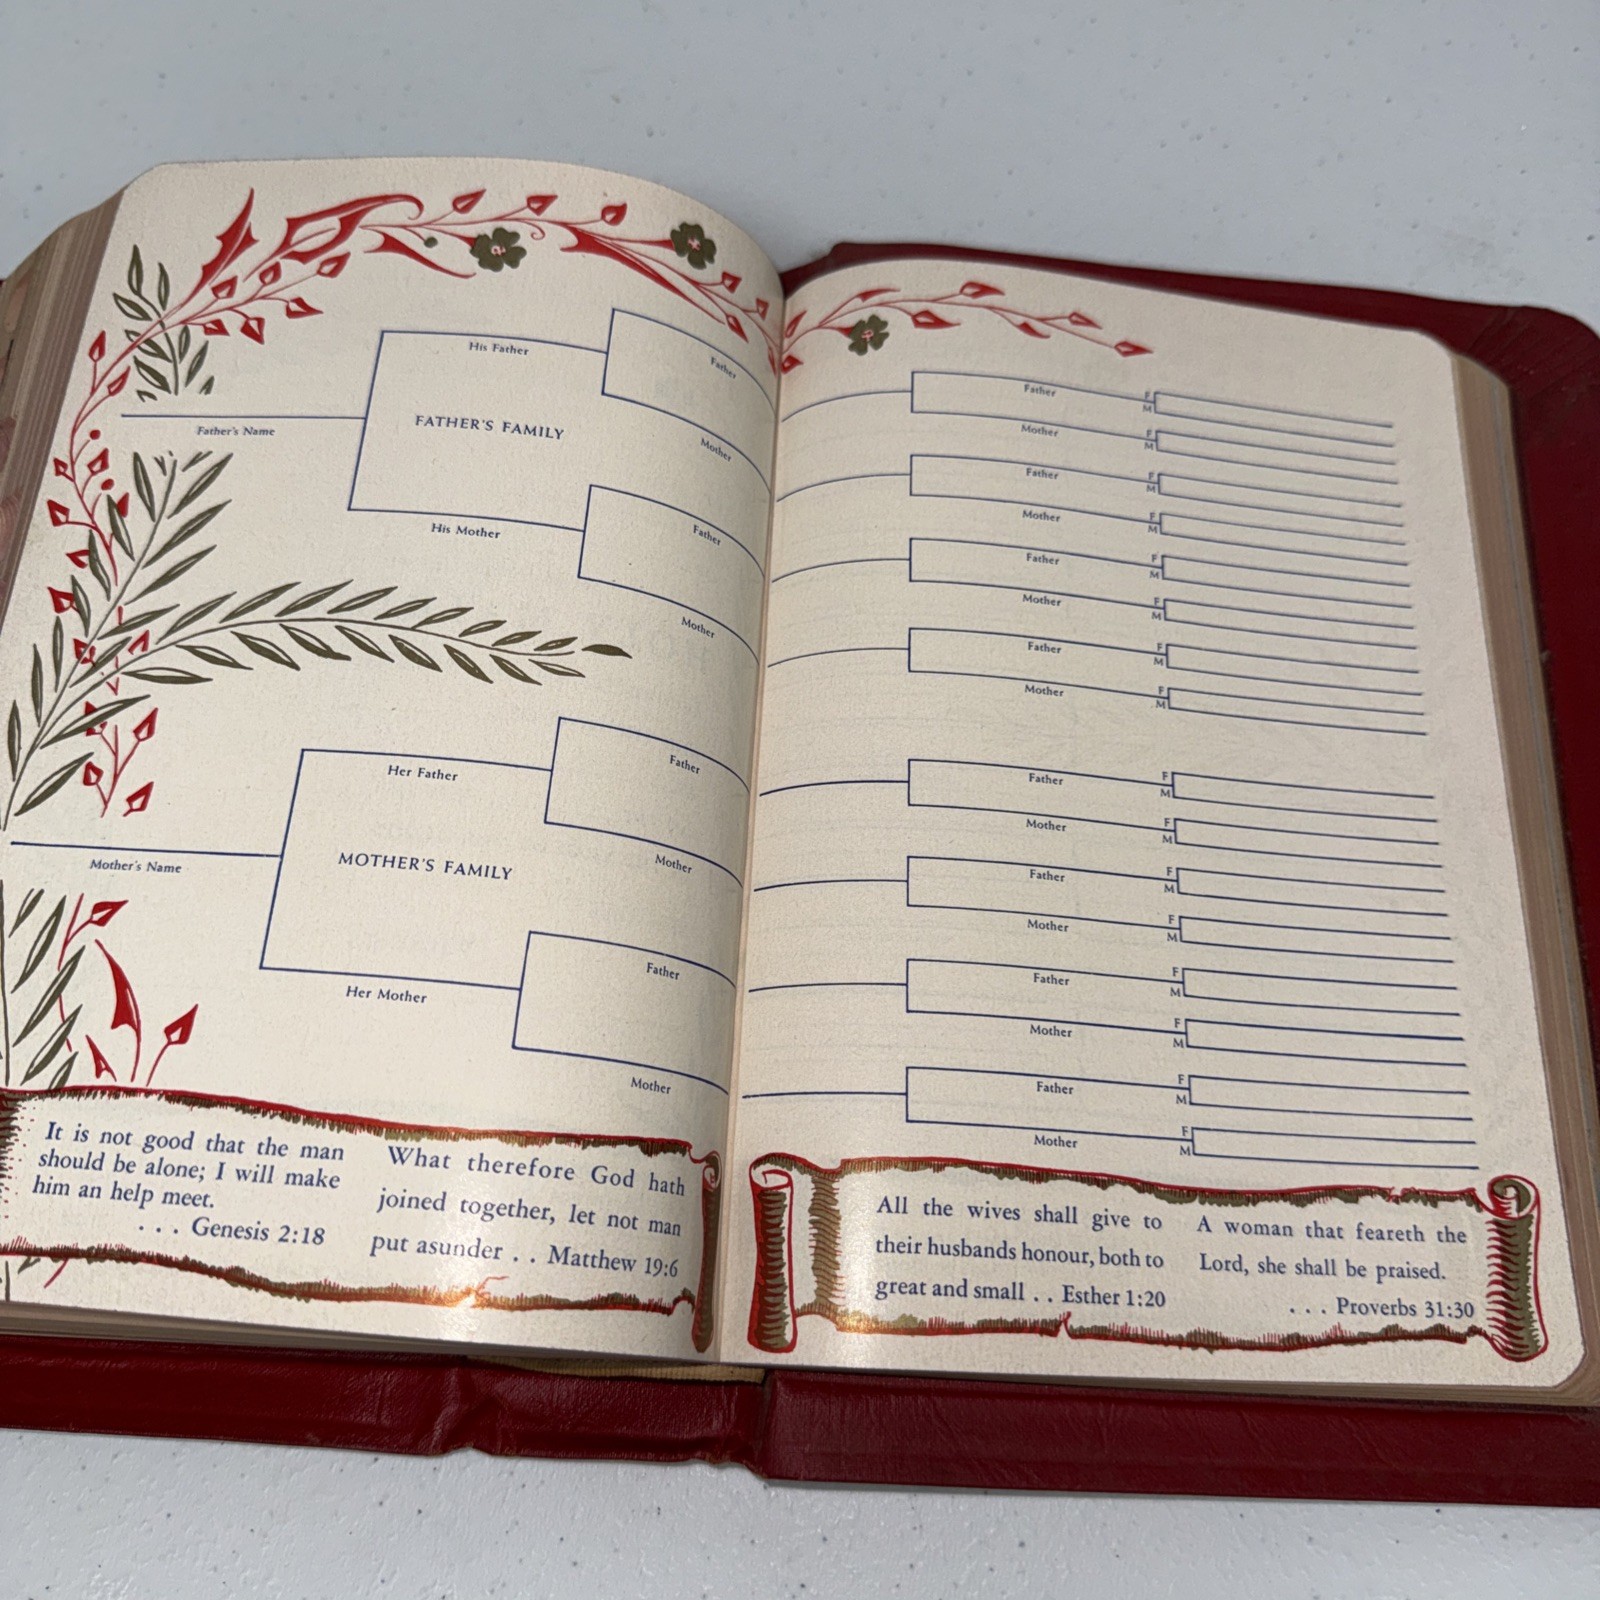 Father's Name
His Father
FATHER'S FAMILY
His Mother
Father
Mother
Father
Mother
Mother's Name
Her Father
MOTHER'S FAMILY
Her Mother
Father
Mother
Father
Mother
It is not good that the man
should be alone; I will make
him an help meet.
. . . Genesis 2:18
What therefore God hath
joined together, let not man
put asunder . . Matthew 19:6
Father
F
M
Mother
F
M
Father
F
M
Mother
F
M
Father
F
M
Mother
F
M
Father
F
M
Mother
F
M
Father
F
M
Mother
F
M
Father
F
M
Mother
F
M
Father
F
M
Mother
F
M
Father
F
M
Mother
F
M
All the wives shall give to
their husbands honour, both to
great and small . . Esther 1:20
A woman that feareth the
Lord, she shall be praised.
. . . Proverbs 31:30